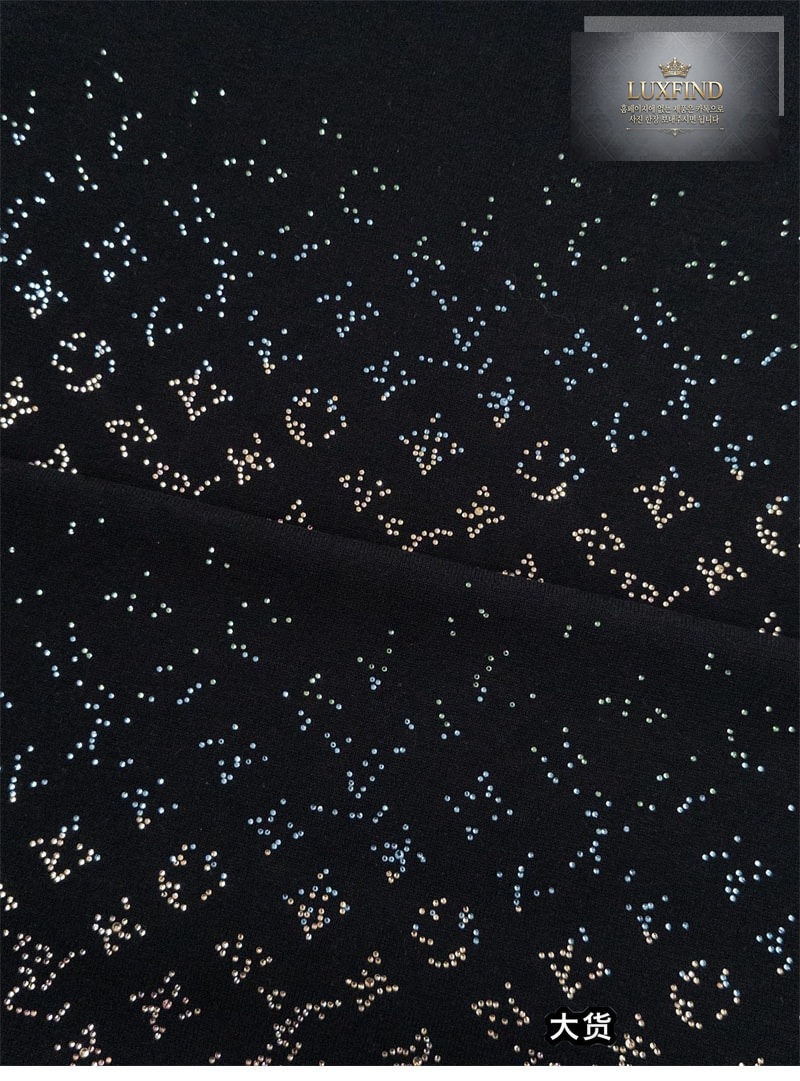 LUXFIND
홈페이지에 없는 제품은 카톡으로
사진 한장 보내주시면 됩니다
大货